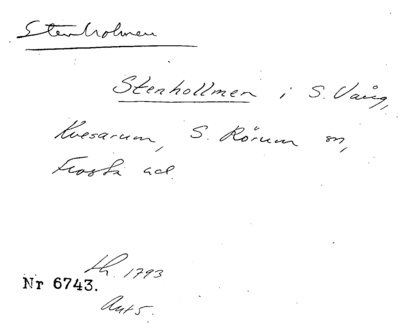 Stenholmen
Stenhollmen i S. Vång,
Kvesarum, S. Rörum sn,
Frosta hd.
lh. 1793
Nr 6743.
Akt 5.